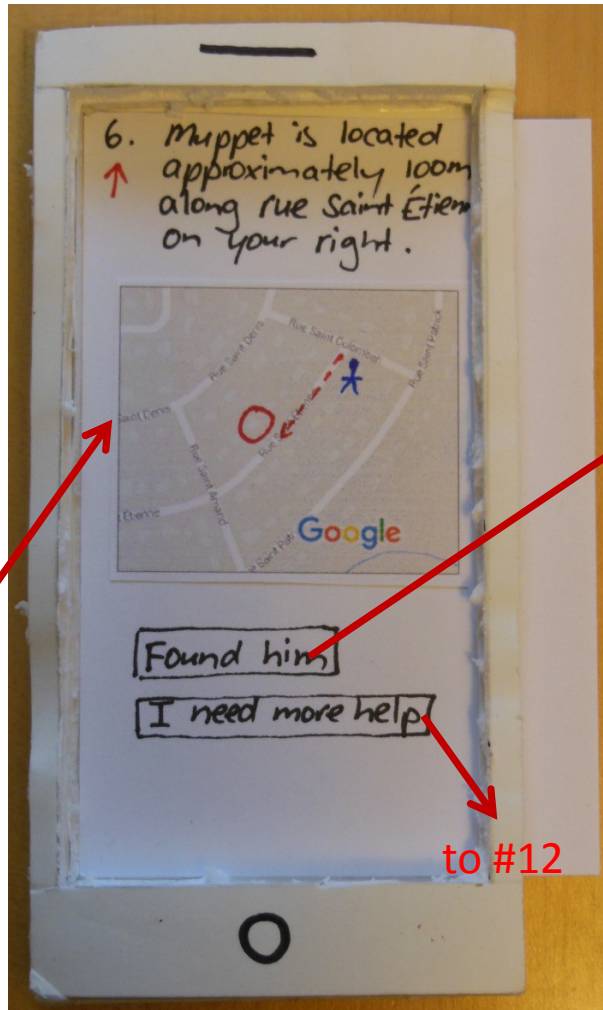 6. Muppet is located
approximately 100m
along rue Saint Étienn
on your right.
Rue Saint Denis
Rue Saint Colomban
Rue Saint Patrick
Saint Denis
Rue Saint Amand
t Etienne
Saint Pat
Google
Found him
I need more help
to #12